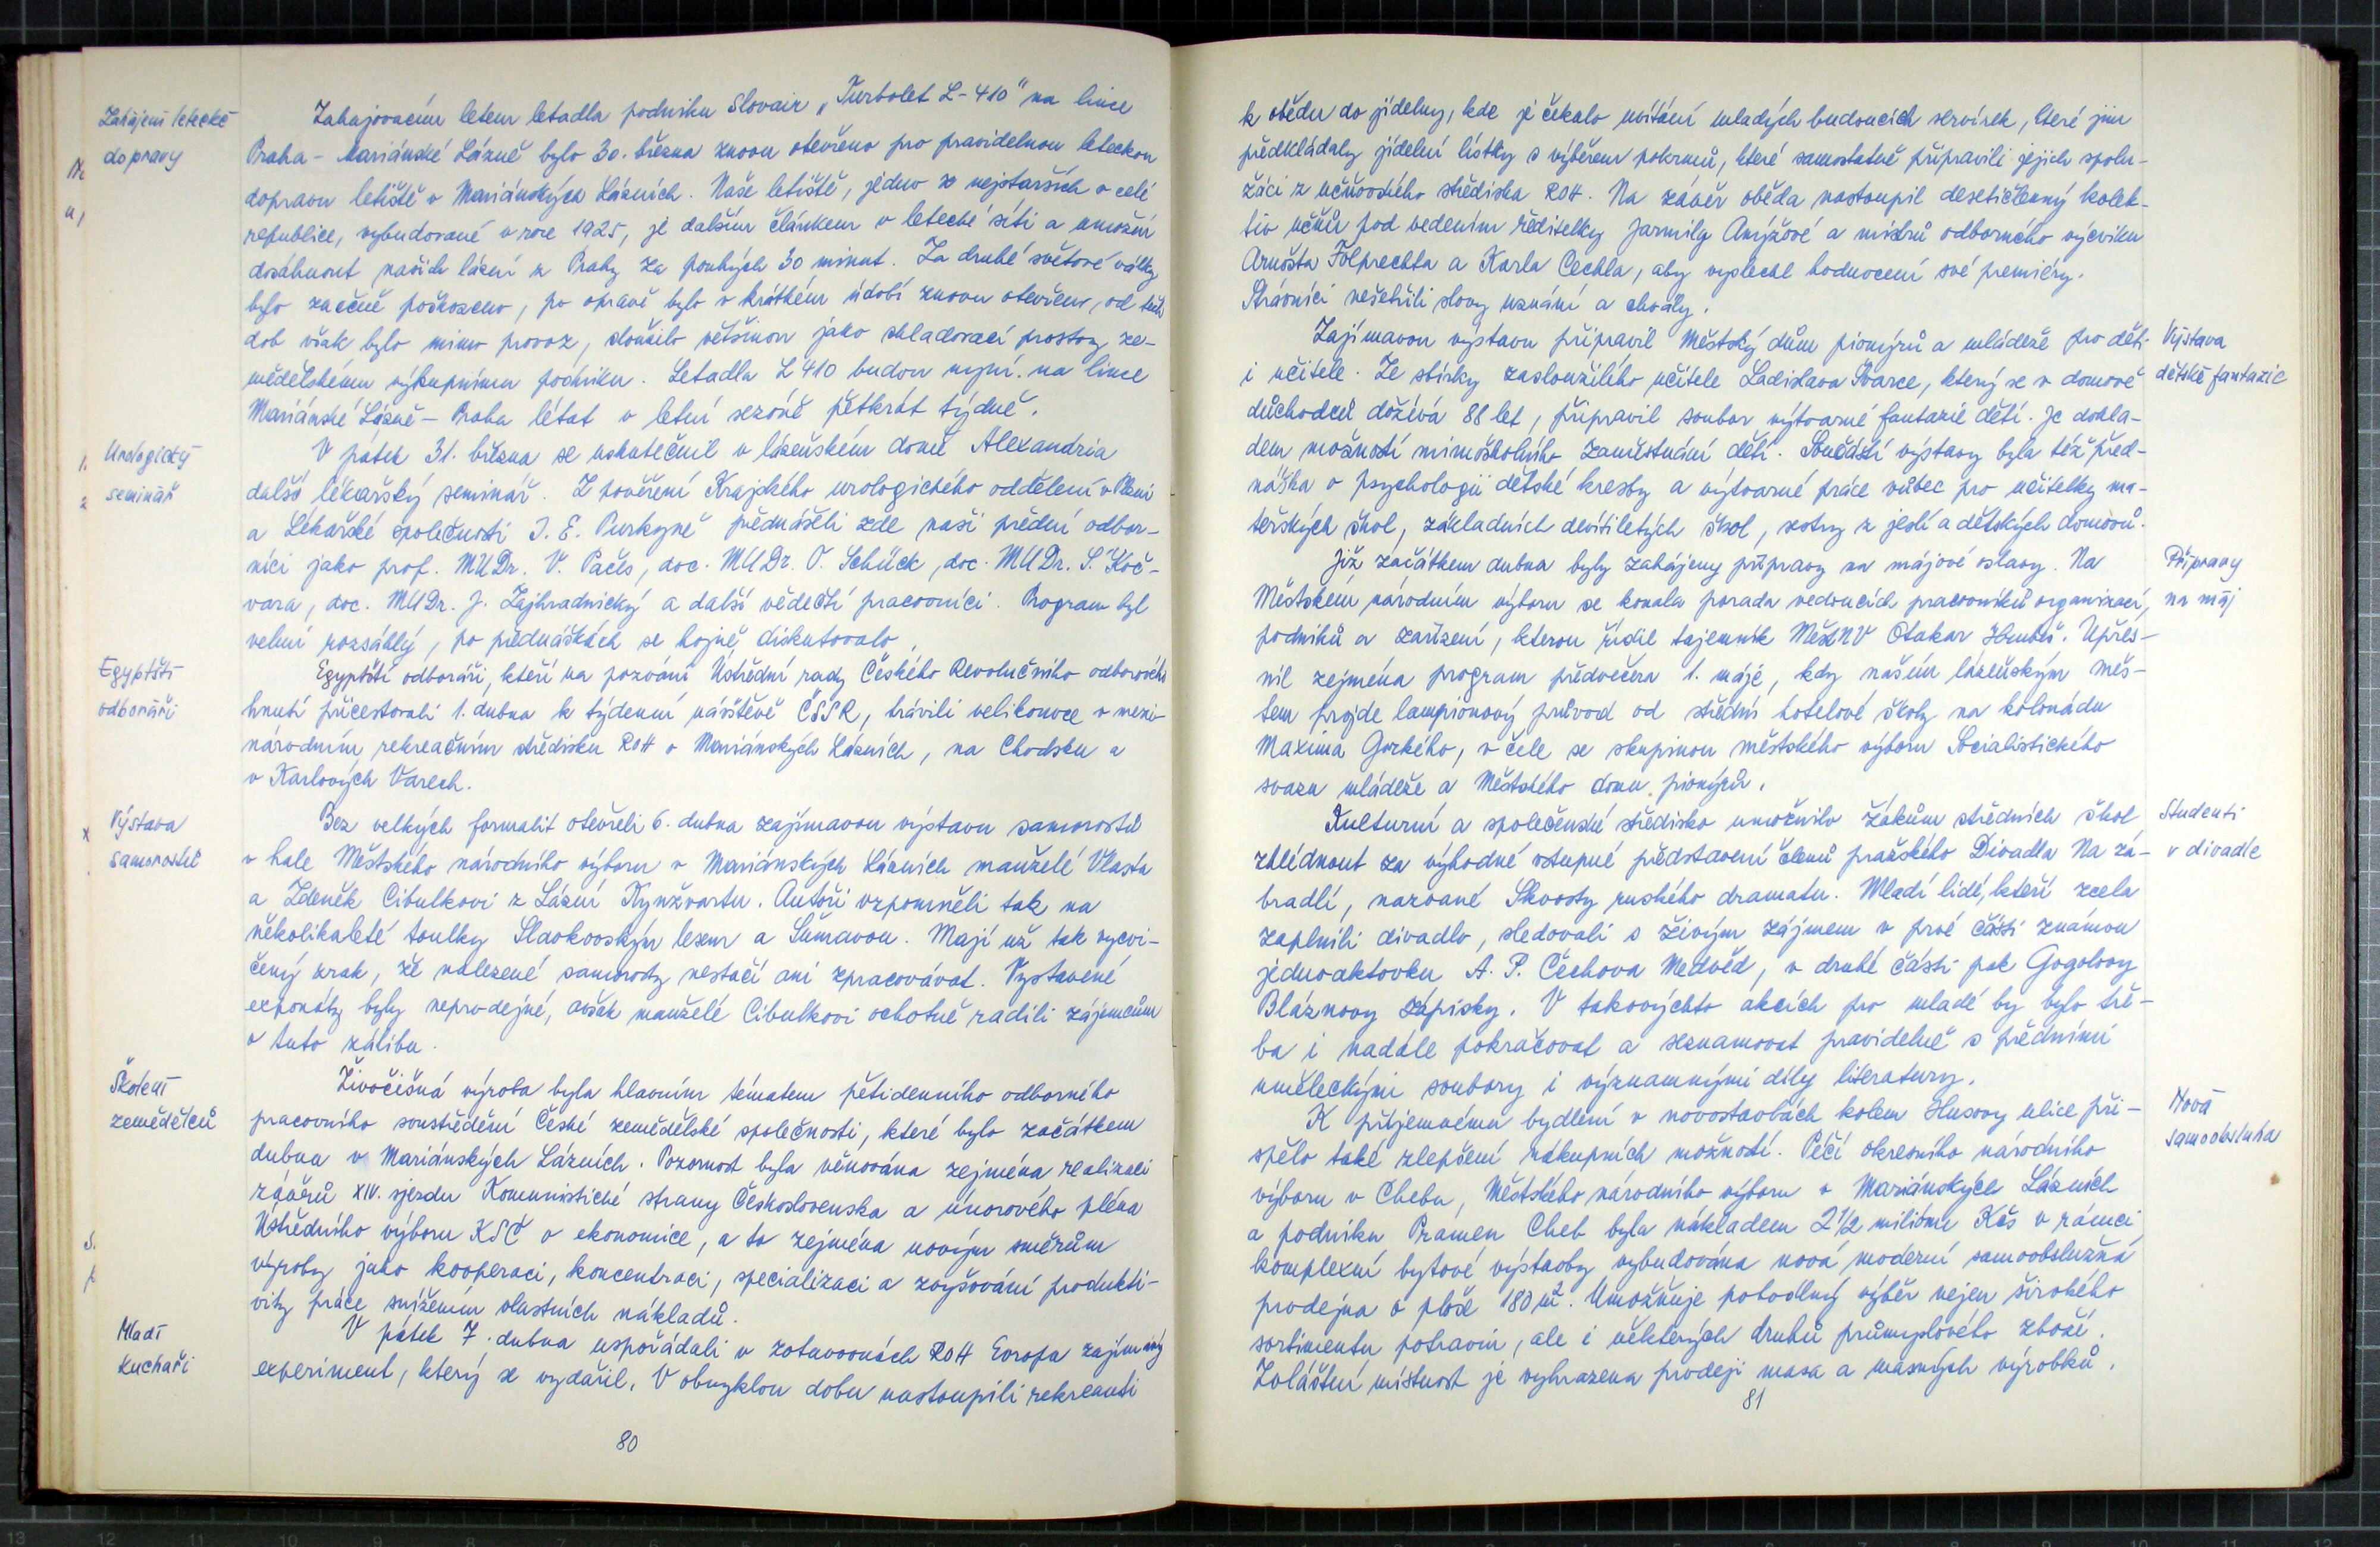 Zahájení letecké
dopravy
Zahajovacím letem letadla podniku Slovair „Turbolet L-410" na lince
Praha - Mariánské Lázně bylo 30. března znovu otevřeno pro pravidelnou leteckou
dopravu letiště v Mariánských Lázních. Naše letiště, jedno z nejstarších v celé
republice, vybudované v roce 1925, je dalším článkem v letecké síti a umožní
dosáhnout našich lázní z Prahy za pouhých 30 minut. Za druhé světové války
bylo značně poškozeno, po opravě bylo v krátkém údobí znovu otevřeno, od těch
dob však bylo mimo provoz, sloužilo většinou jako skladovací prostory ze-
mědělskému výkupnímu podniku. Letadla L 410 budou nyní na lince
Mariánské Lázně - Praha létat v letní sezóně pětkrát týdně.
Urologický
seminář
V pátek 31. března se uskutečnil v lázeňském domě Alexandria
další lékařský seminář. Z pověření Krajského urologického oddělení v Plzni
a Lékařské společnosti J. E. Purkyně přednášeli zde naši přední odbor-
níci jako prof. MUDr. V. Pačes, doc. MUDr. O. Schück, doc. MUDr. S. Koč-
vara, doc. MUDr. J. Zajhradnický a další vědečtí pracovníci. Program byl
velmi rozsáhlý, po přednáškách se hojně diskutovalo.
Egyptští
odboráři
Egyptští odboráři, kteří na pozvání Ústřední rady Českého Revolučního odborového
hnutí přicestovali 1. dubna k týdenní návštěvě ČSSR, trávili velikonoce v mezi-
národním rekreačním středisku ROH v Mariánských Lázních, na Chodsku a
v Karlových Varech.
Výstava
samorostů
Bez velkých formalit otevřeli 6. dubna zajímavou výstavu samorostů
v hale Městského národního výboru v Mariánských Lázních manželé Vlasta
a Zdeněk Cibulkovi z Lázní Kynžvartu. Autoři vzpomněli tak na
několikaleté toulky Slavkovským lesem a Šumavou. Mají už tak vycvi-
čený zrak, že nalezené samorosty nestačí ani zpracovávat. Vystavené
exponáty byly neprodejné, avšak manželé Cibulkovi ochotně radili zájemcům
o tuto zálibu.
Školení
zemědělců
Živočišná výroba byla hlavním tématem pětidenního odborného
pracovního soustředění České zemědělské společnosti, které bylo začátkem
dubna v Mariánských Lázních. Pozornost byla věnována zejména realizaci
závěrů XIV. sjezdu Komunistické strany Československa a únorového pléna
Ústředního výboru KSČ o ekonomice, a to zejména novým směrům
výroby jako kooperaci, koncentraci, specializaci a zvyšování produkti-
vity práce snížením vlastních nákladů.
Mladí
kuchaři
V pátek 7. dubna uspořádali v zotavovnách ROH Evropa zajímavý
experiment, který se vydařil. V obvyklou dobu nastoupili rekreanti
80
k obědu do jídelny, kde je čekalo uvítání mladých budoucích servírek, které jim
předkládaly jídelní lístky s výběrem pokrmů, které samostatně připravili jejich spolu-
žáci z učňovského střediska ROH. Na závěr oběda nastoupil desetičlenný kolek-
tiv učňů pod vedením ředitelky Jarmily Anýžové a mistrů odborného výcviku
Arnošta Folprechta a Karla Cechla, aby vyslechl hodnocení své premiéry.
Strávníci nešetřili slovy uznání a chvály.
Výstava
dětské fantazie
Zajímavou výstavu připravil Městský dům pionýrů a mládeže pro děti
i učitele. Ze sbírky zasloužilého učitele Ladislava Švarce, který se v domově
důchodců dožívá 88 let, připravil soubor výtvarné fantazie dětí. Je dokla-
dem možností mimoškolního zaměstnání dětí. Součástí výstavy byla též před-
náška o psychologii dětské kresby a výtvarné práce vůbec pro učitelky ma-
teřských škol, základních devítiletých škol, sestry z jeslí a dětských domovů.
Přípravy
na máj
Již začátkem dubna byly zahájeny přípravy na májové oslavy. Na
Městském národním výboru se konala porada vedoucích pracovníků organizací,
podniků a zařízení, kterou řídil tajemník MěstNV Otakar Hrubeš. Upřes-
nil zejména program předvečera 1. máje, kdy naším lázeňským měs-
tem projde lampionový průvod od střední hotelové školy na kolonádu
Maxima Gorkého, v čele se skupinou městského výboru Socialistického
svazu mládeže a Městského domu pionýrů.
Studenti
v divadle
Kulturní a společenské středisko umožnilo žákům středních škol
zhlédnout za výhodné vstupné představení členů pražského Divadla Na zá-
bradlí, nazvané Skvosty ruského dramatu. Mladí lidé, kteří zcela
zaplnili divadlo, sledovali s živým zájmem v prvé části známou
jednoaktovku A. P. Čechova Medvěd, v druhé části pak Gogolovy
Bláznovy zápisky. V takovýchto akcích pro mladé by bylo tře-
ba i nadále pokračovat a seznamovat pravidelně s předními
uměleckými soubory i významnými díly literatury.
Nová
samoobsluha
K příjemnému bydlení v novostavbách kolem Husovy ulice při-
spělo také zlepšení nákupních možností. Péčí okresního národního
výboru v Chebu, Městského národního výboru v Mariánských Lázních
a podniku Pramen Cheb byla nákladem 2 1/2 miliónu Kčs v rámci
komplexní bytové výstavby vybudována nová moderní samoobslužná
prodejna o ploše 180 m². Umožňuje pohodlný výběr nejen širokého
sortimentu potravin, ale i některých druhů průmyslového zboží.
Zvláštní místnost je vyhrazena prodeji masa a masných výrobků.
81